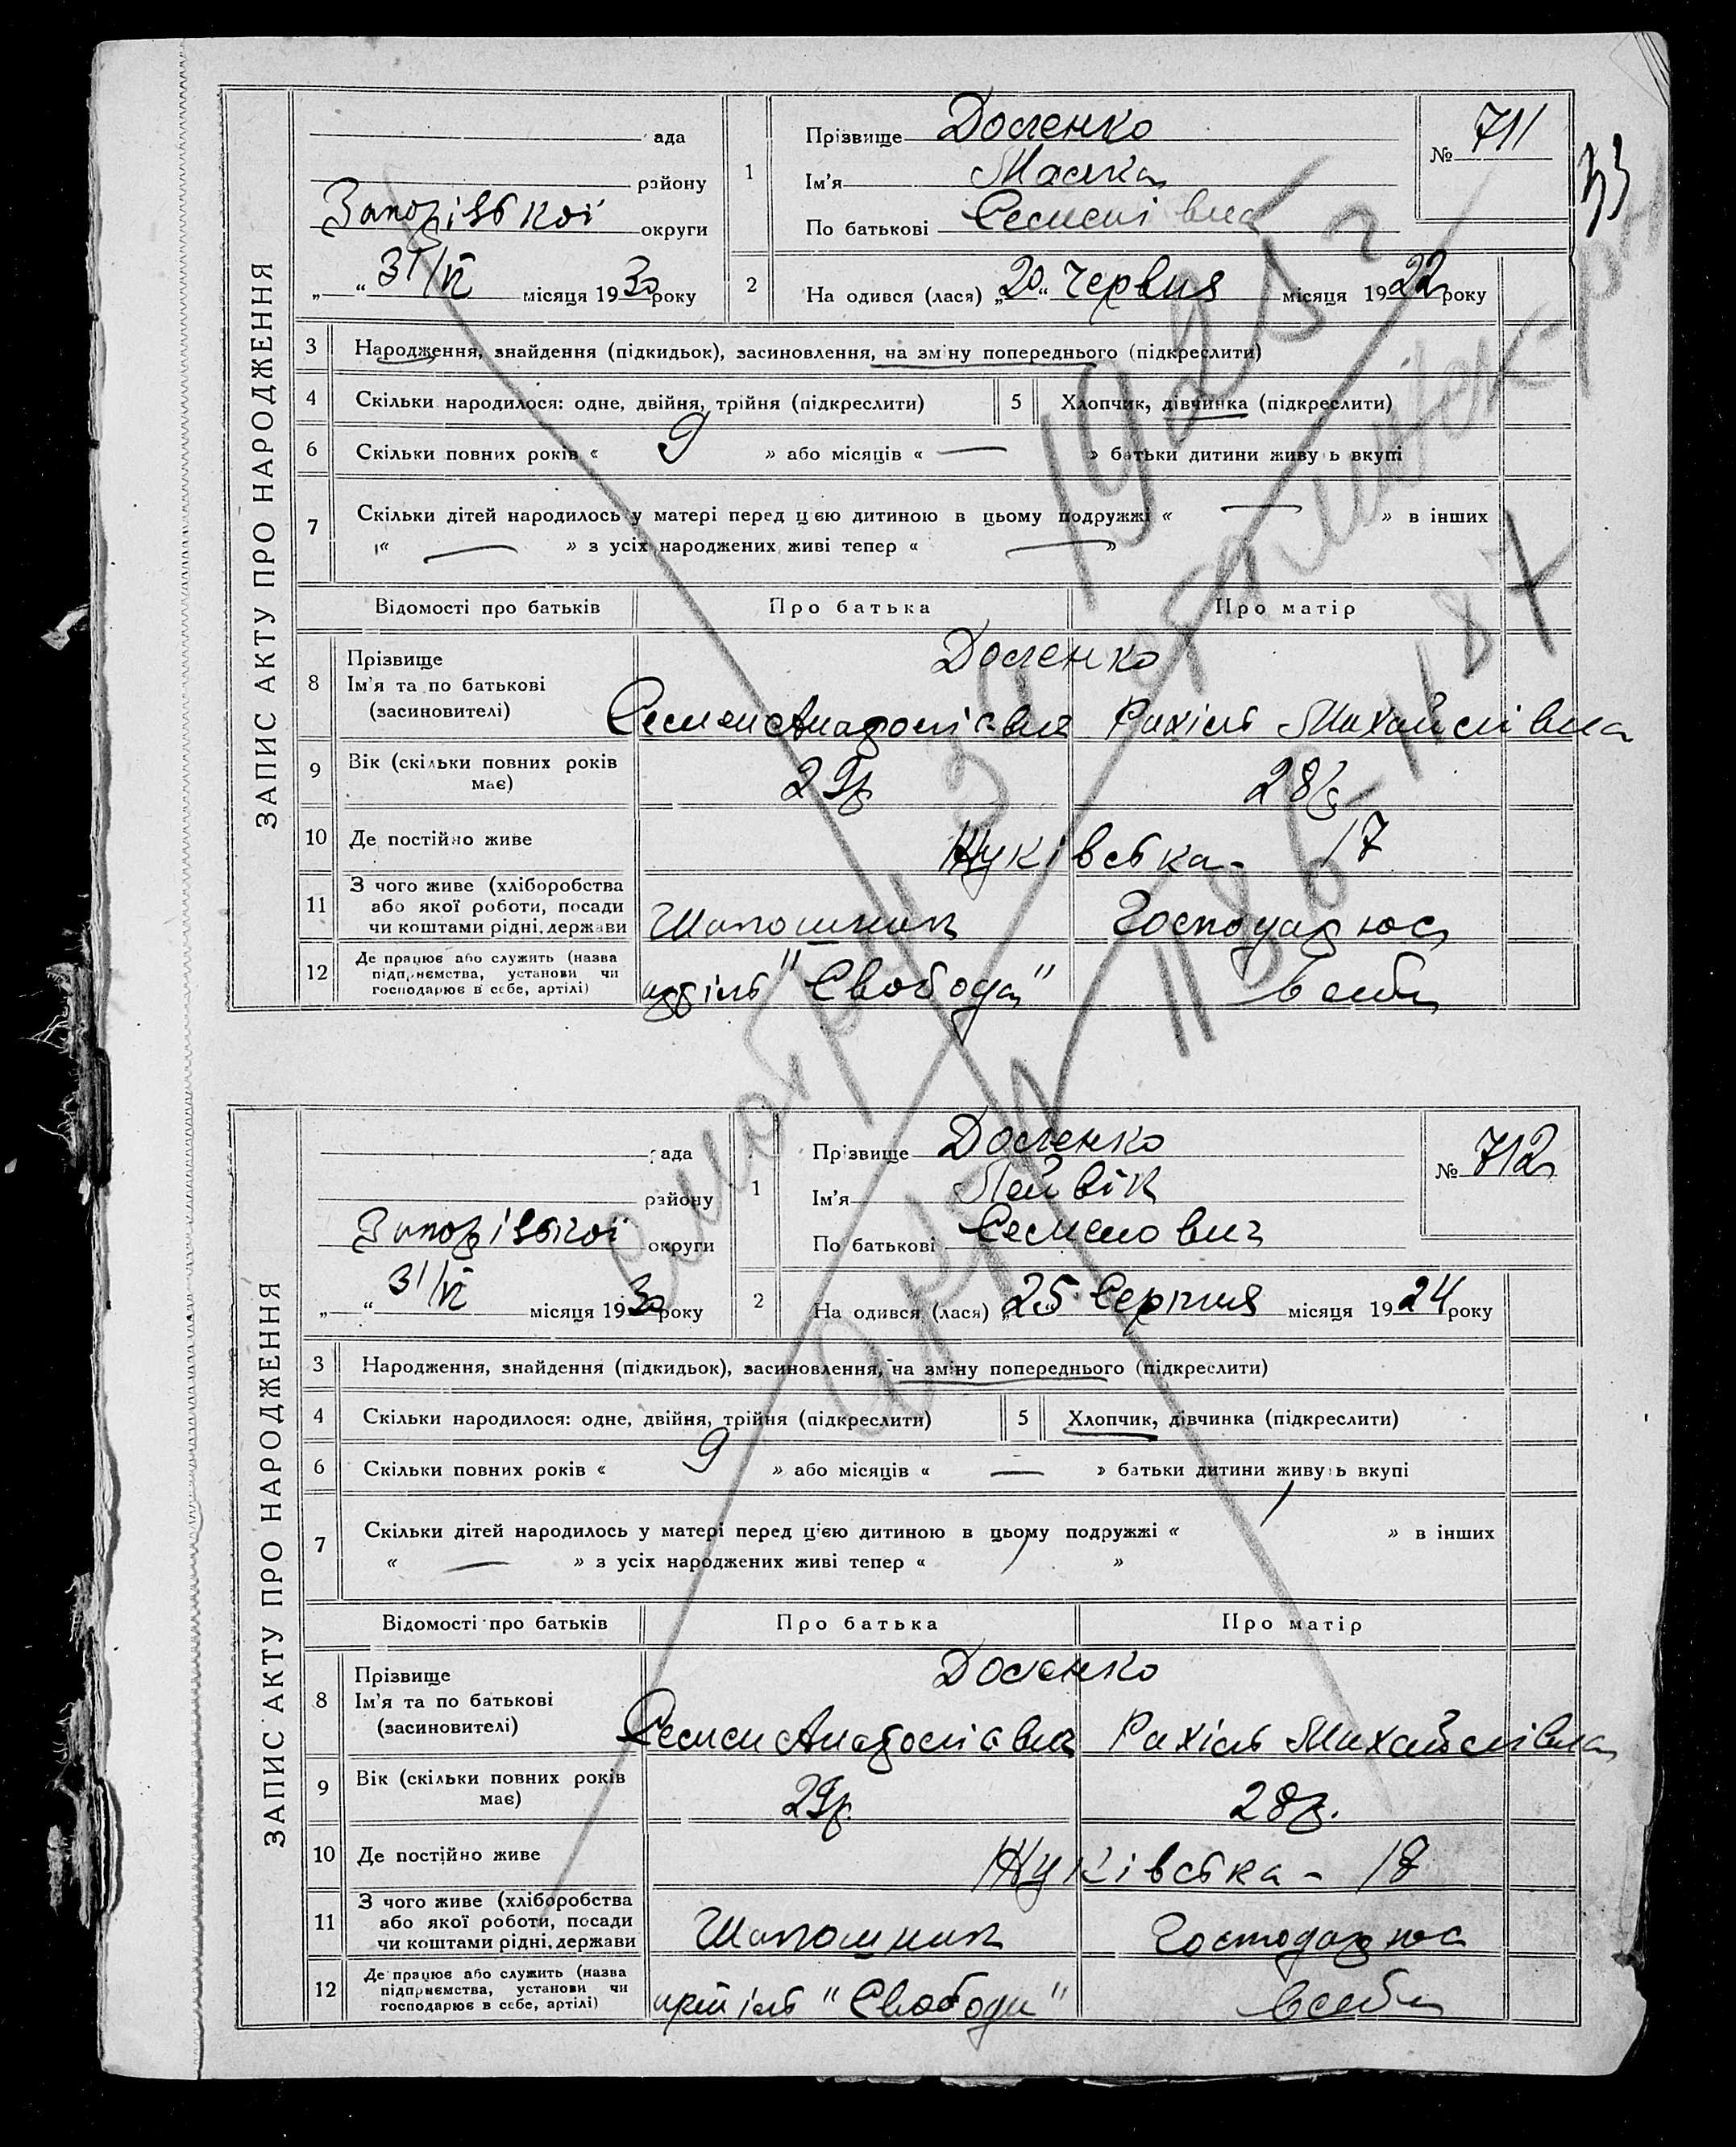 ЗАПИС АКТУ ПРО НАРОДЖЕННЯ
ада
району
Запорізької округи
„—“ 31/VI місяця 1930 року
1
Прізвище Доленко
Ім'я Малка
По батькові Семенівна
№ 711
33
2
На одився (лася) „20“ Червня місяця 1922 року
3 Народження, знайдення (підкидьок), засиновлення, на зміну попереднього (підкреслити)
4 Скільки народилося: одне, двійня, трійня (підкреслити)
5 Хлопчик, дівчинка (підкреслити)
6 Скільки повних років « 9 » або місяців « — » батьки дитини живу ь вкупі
7 Скільки дітей народилось у матері перед цією дитиною в цьому подружжі « — » в інших
« — » з усіх народжених живі тепер « — »
Відомості про батьків Про батька Про матір
8 Прізвище
Ім'я та по батькові
(засновителі)
Доленко
Семен Рахіль Михайлівна
9 Вік (скільки повних років має) 29р. 28р.
10 Де постійно живе Жуківська - 17
11 З чого живе (хліборобства або якої роботи, посади чи коштами рідні, держави Шапошник Господарює
12 Де працює або служить (назва підприємства, установи чи господарює в себе, артілі) артіль "Свобода" в себе
Смотри
1925 г
1186 1187
ЗАПИС АКТУ ПРО НАРОДЖЕННЯ
ада
району
Запорізької округи
„—“ 31/VI місяця 1930 року
1
Прізвище Доленко
Ім'я Лейвік
По батькові Семенович
№ 712
2
На одився (лася) „25“ Серпня місяця 1924 року
3 Народження, знайдення (підкидьок), засиновлення, на зміну попереднього (підкреслити)
4 Скільки народилося: одне, двійня, трійня (підкреслити)
5 Хлопчик, дівчинка (підкреслити)
6 Скільки повних років « 9 » або місяців « — » батьки дитини живу ь вкупі
7 Скільки дітей народилось у матері перед цією дитиною в цьому подружжі « 1 » в інших
« — » з усіх народжених живі тепер « 1 »
Відомості про батьків Про батька Про матір
8 Прізвище
Ім'я та по батькові
(засиновителі)
Доленко
Семен Рахіль Михайлівна
9 Вік (скільки повних років має) 29р. 28р.
10 Де постійно живе Жуківська - 17
11 З чого живе (хліборобства або якої роботи, посади чи коштами рідні, держави Шапошник Господарює
12 Де працює або служить (назва підприємства, установи чи господарює в себе, артілі) артіль "Свобода" в себе